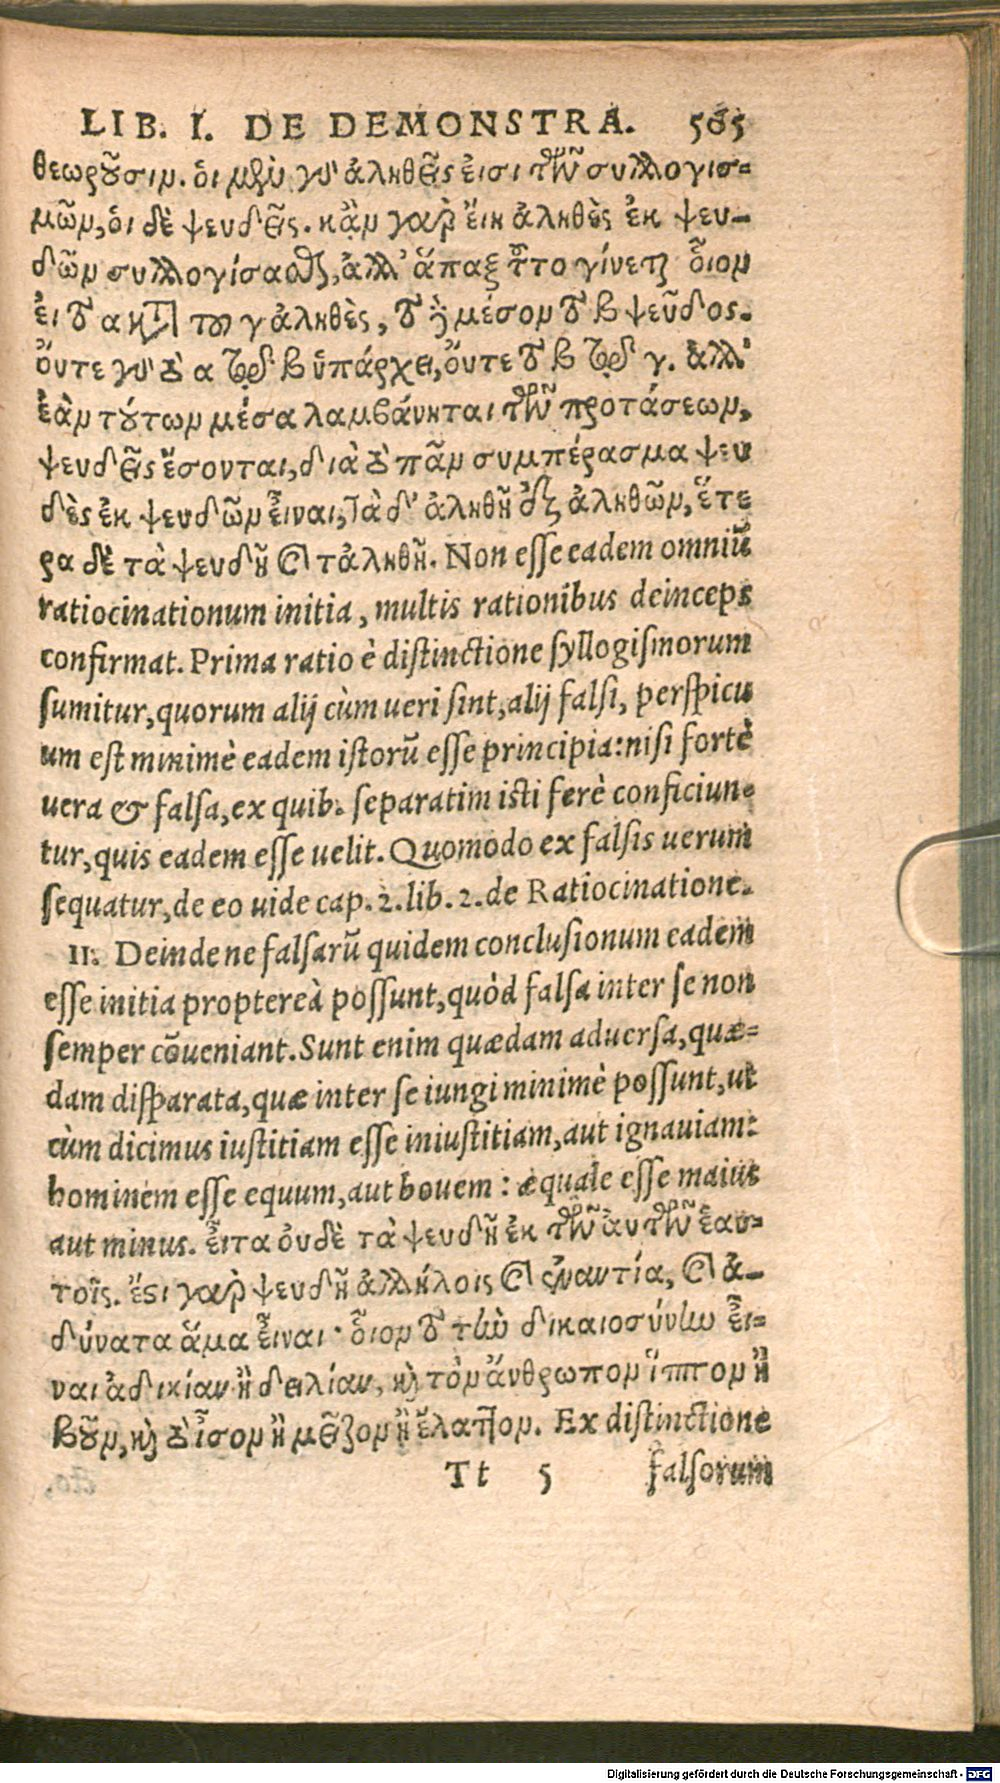 LIB. I. DE DEMONSTRA. 565
θεωροῦσιν. οἱ μὲν γὰρ ἀληθεῖς εἰσι τῶν συλλογισ-
μῶν, οἱ δὲ ψευδεῖς. κἂν γὰρ εἴη ἀληθὲς ἐκ ψευ-
δῶν συλλογίσασθαι, ἀλλ' ἅπαξ τοῦτο γίνεται οἷον
εἰ τὸ α κατὰ τοῦ γ ἀληθὲς, τὸ δὲ μέσον τὸ β ψεῦδος.
οὔτε γὰρ τὸ α τῷ β ὑπάρχει, οὔτε τὸ β τῷ γ. ἀλλ'
ἐὰν τούτων μέσα λαμβάνηται τῶν προτάσεων,
ψευδεῖς ἔσονται, διὰ τὸ πᾶν συμπέρασμα ψευ
δὲς ἐκ ψευδῶν εἶναι, τὰ δ' ἀληθῆ ἐξ ἀληθῶν, ἕτε
ρα δὲ τὰ ψευδῆ καὶ τἀληθῆ. Non esse eadem omniũ
ratiocinationum initia, multis rationibus deinceps
confirmat. Prima ratio è distinctione syllogismorum
sumitur, quorum alij cùm ueri sint, alij falsi, perspicu
um est minimè eadem istorũ esse principia: nisi fortè
uera & falsa, ex quib. separatim isti ferè conficiun-
tur, quis eadem esse uelit. Quomodo ex falsis uerum
sequatur, de eo uide cap. 2. lib. 2. de Ratiocinatione.
II. Deinde ne falsarũ quidem conclusionum eadem
esse initia proptereà possunt, quòd falsa inter se non
semper cõueniant. Sunt enim quædam aduersa, quæ-
dam disparata, quæ inter se iungi minimè possunt, ut
cùm dicimus iustitiam esse iniustitiam, aut ignauiam:
hominem esse equum, aut bouem: æquale esse maius
aut minus. εἶτα οὐδὲ τὰ ψευδῆ ἐκ τῶν αὐτῶν ἑαυ-
τοῖς. ἔστι γὰρ ψευδῆ ἀλλήλοις καὶ ἐναντία, καὶ ἀ-
δύνατα ἅμα εἶναι· οἷον τὸ τὴν δικαιοσύνην εἶ-
ναι ἀδικίαν ἢ δειλίαν, καὶ τὸν ἄνθρωπον ἵππον ἢ
βοῦν, καὶ τὸ ἶσον ἢ μεῖζον ἢ ἔλαττον. Ex distinctione
Tt 5 falsorum
Digitalisierung gefördert durch die Deutsche Forschungsgemeinschaft - DFG